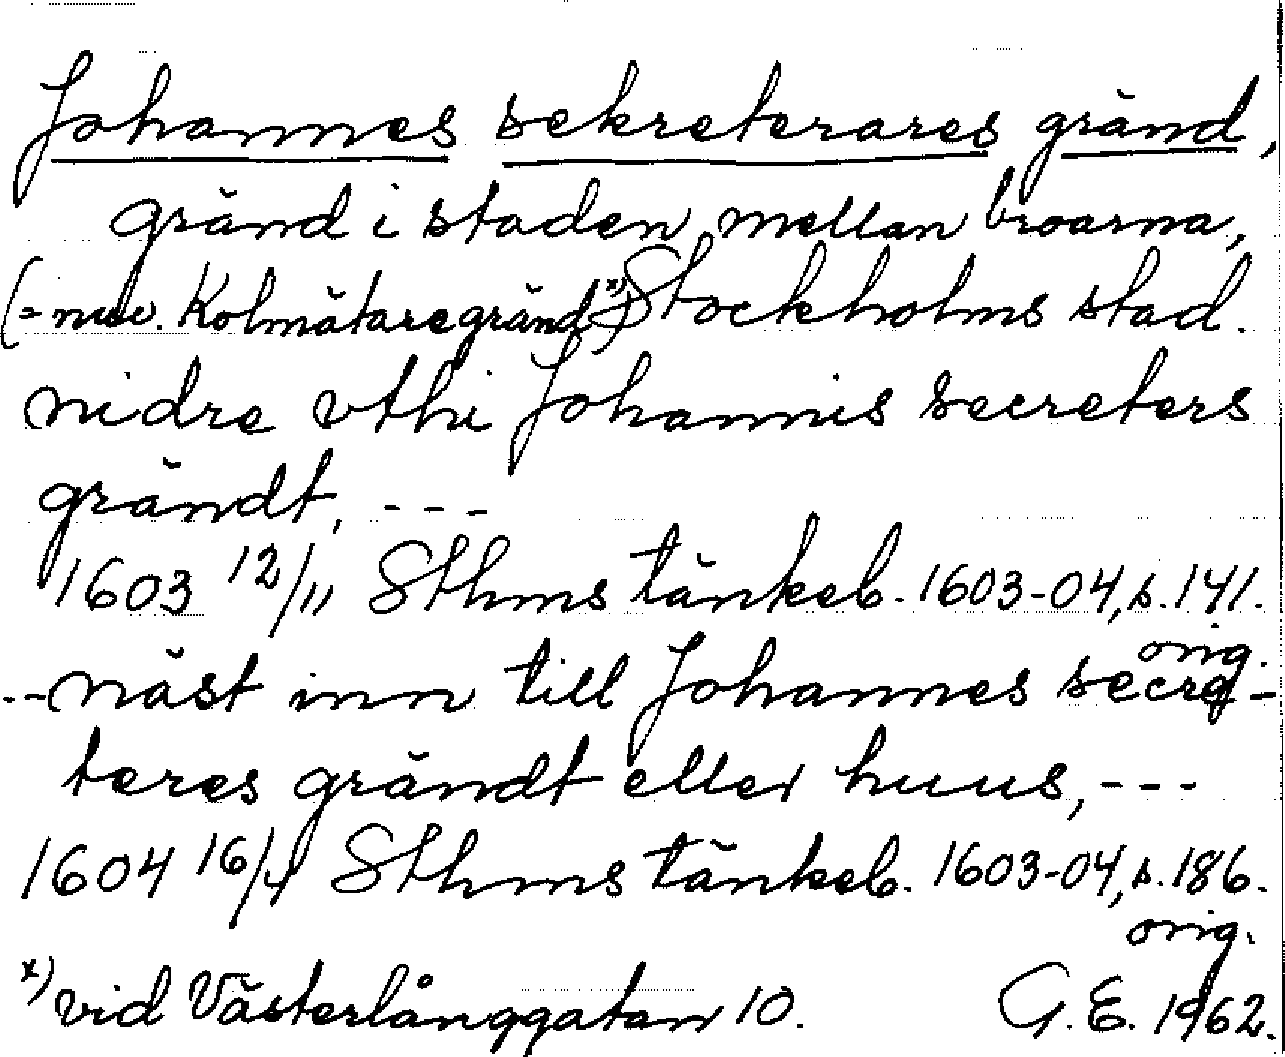 Johannes sekreterares gränd,
gränd i staden mellan broarna,
(= nuv. Kolmätaregränd x)) Stockholms stad.
nidre vthi Johannis secreters
grändt, ---
1603 12/11 Sthms tänkeb. 1603-04, s. 141.
orig.
-- näst inn till Johannes secre-
teres grändt eller huus, ---
1604 16/4 Sthms tänkeb. 1603-04, s. 186.
orig.
x) vid Västerlånggatan 10. G.E. 1962.